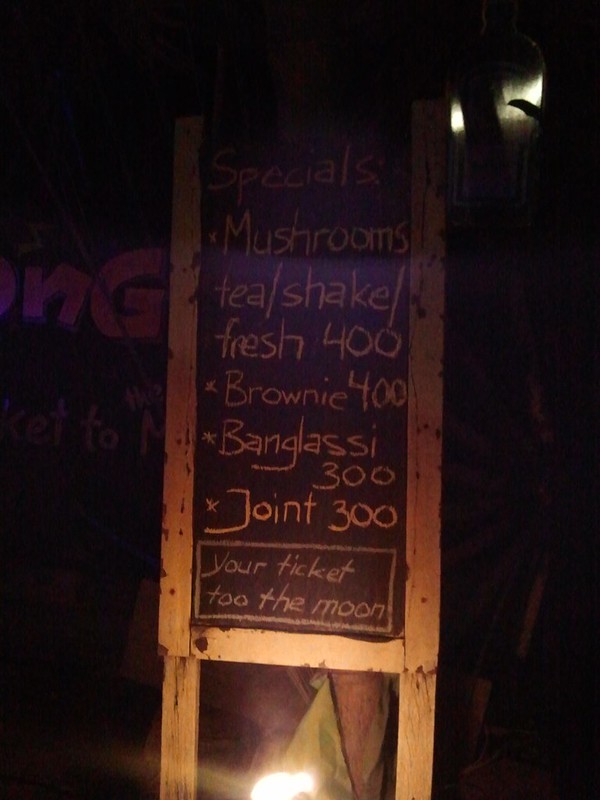 Specials:
*Mushrooms
tea/shake/
fresh 400
*Brownie 400
*Banglassi
300
*Joint 300
your ticket
too the moon
onG
the
ket to M